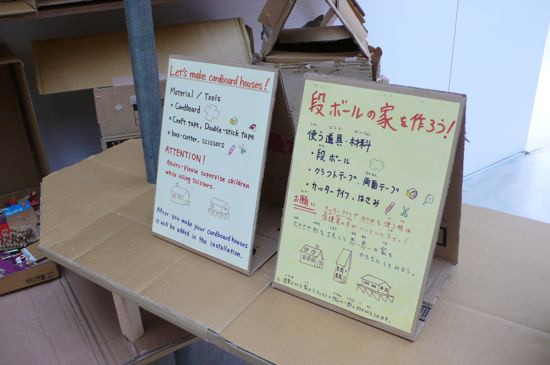 Let's make cardboard houses!
Material / Tools
• Cardboard
• Craft tape, Double-stick tape
• box-cutter, scissors
ATTENTION!
Adults-Please supervise children
while using scissors.
After you make your cardboard houses
it will be added in the installation.
段ボールの家を作ろう!
使う道具・材料
• 段ボール
• クラフトテープ、両面テープ
• カッターナイフ・はさみ
お願い
カッターナイフやはさみを使う時は